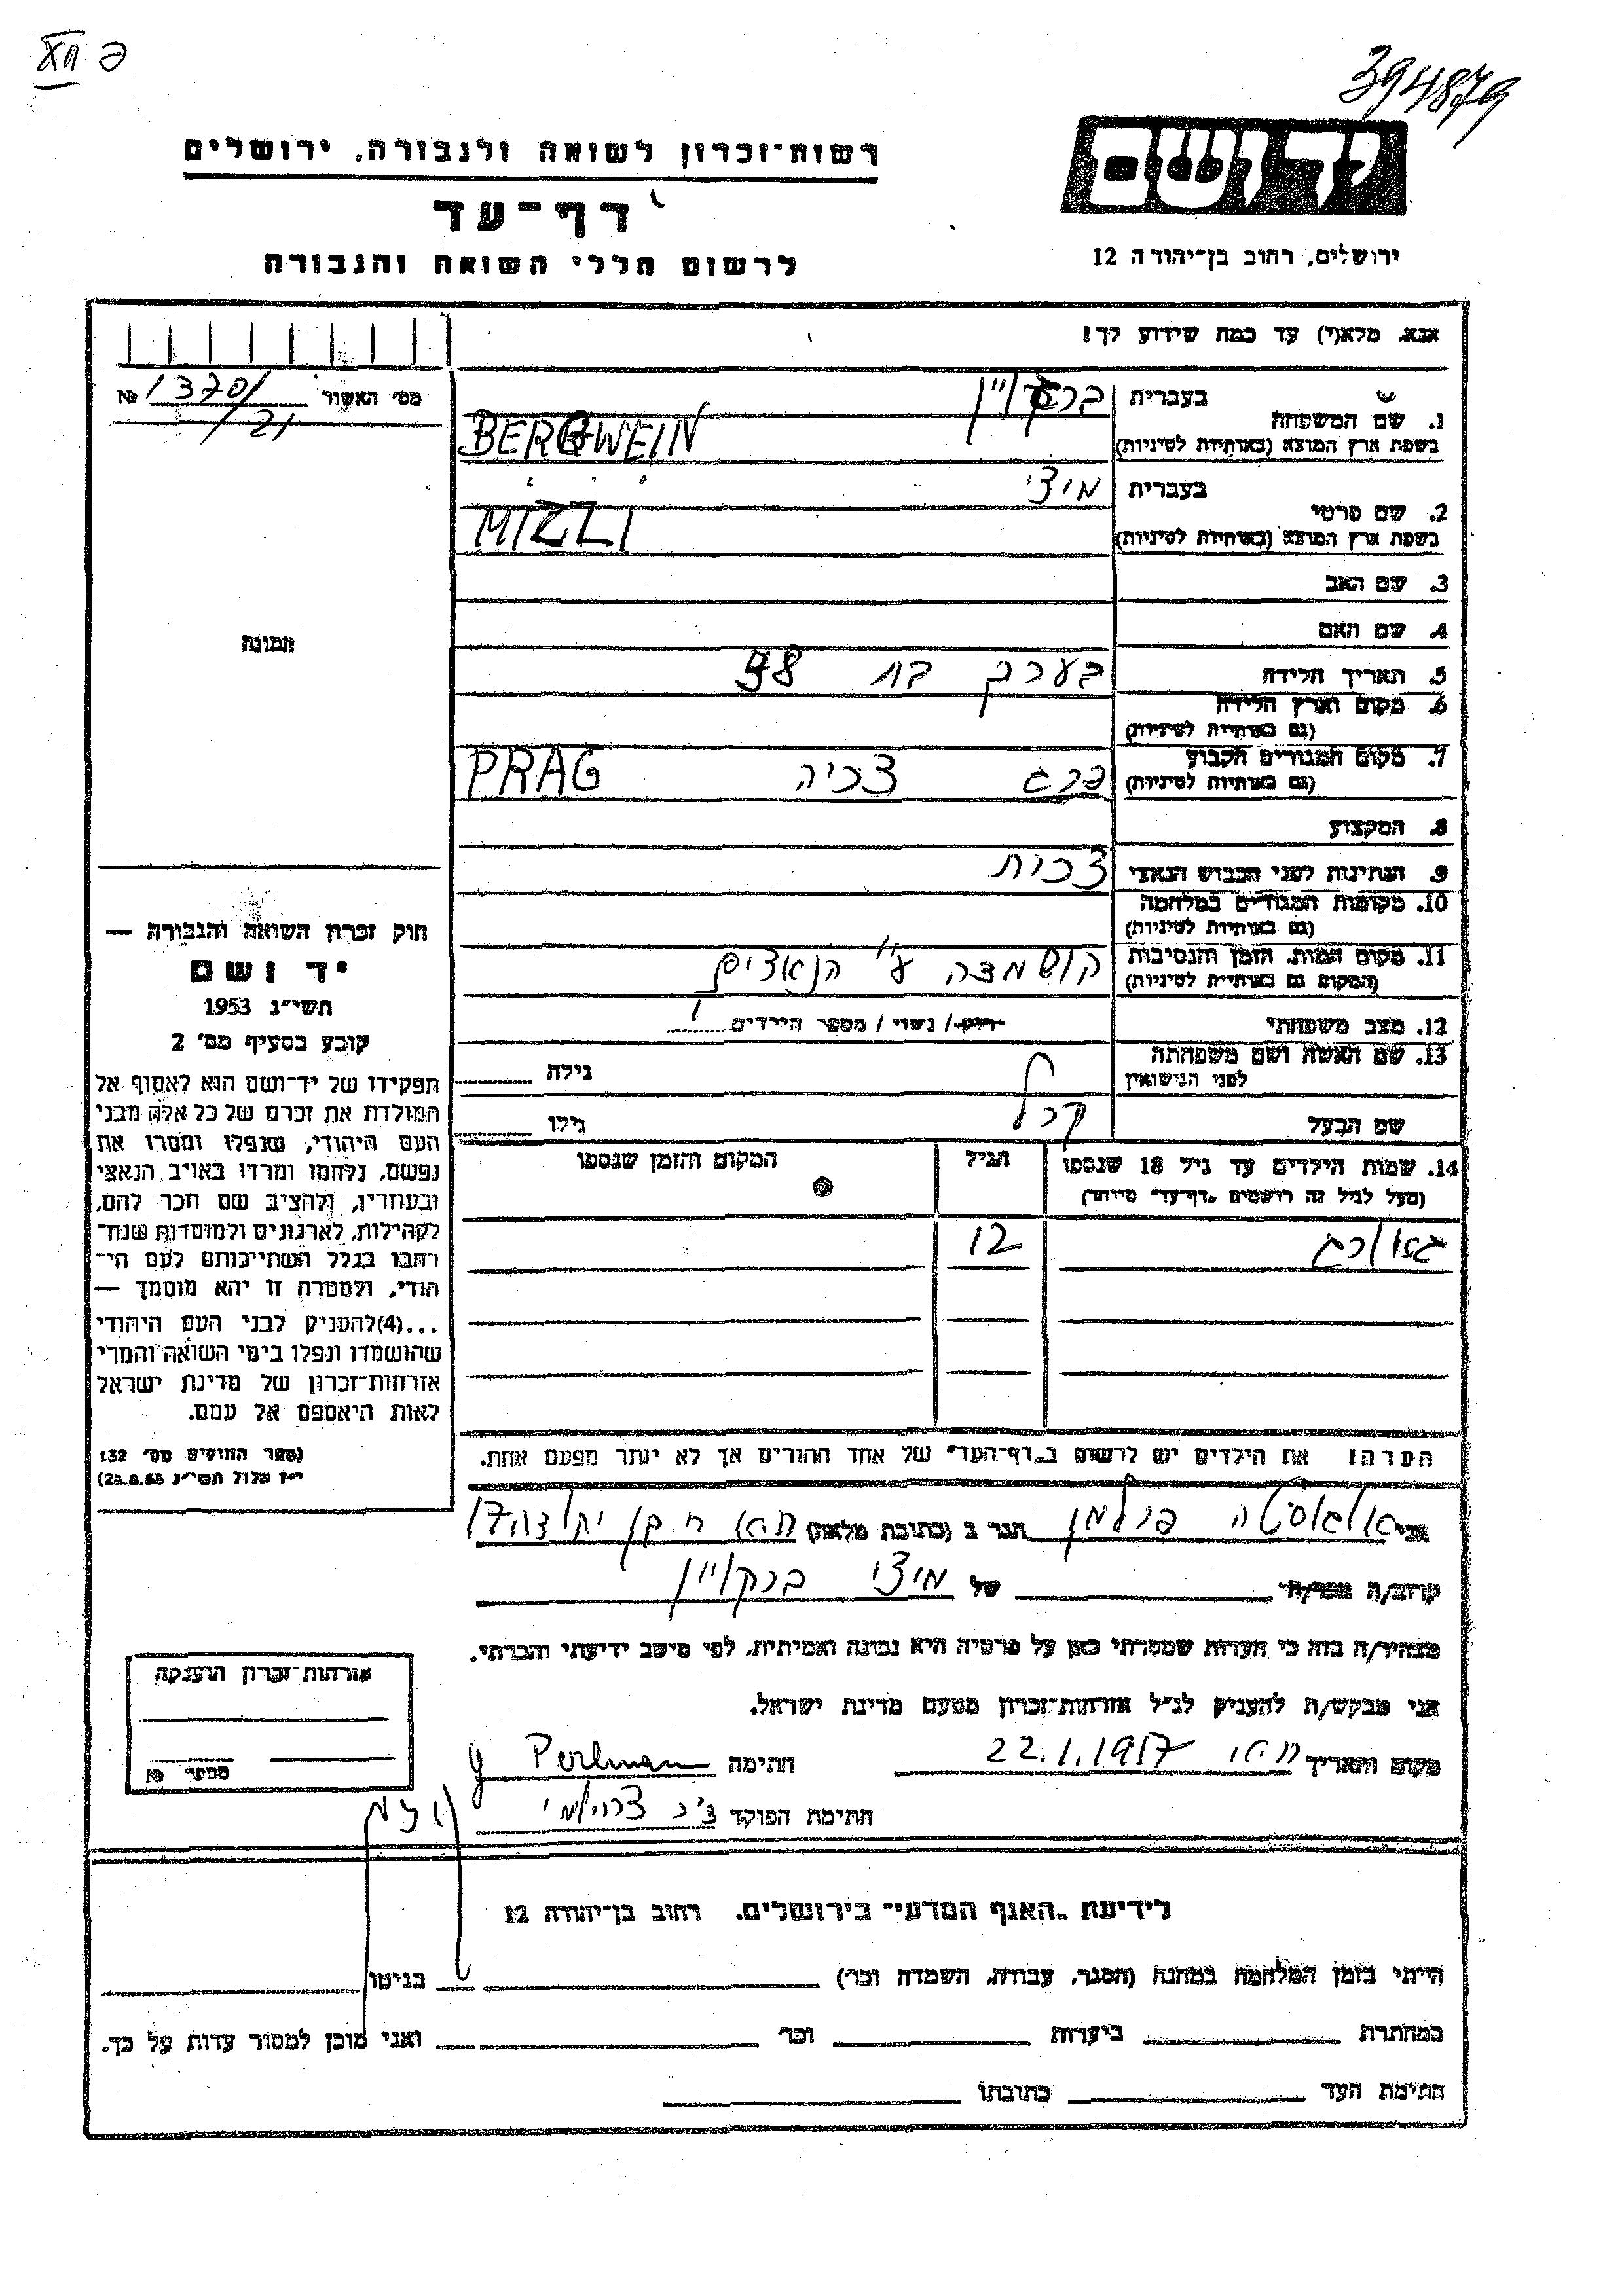 394879
יד ושם
ירושלים, רחוב בן־יהודה 12
רשות־זכרון לשואה ולגבורה, ירושלים
דף־עד
לרשום חללי השואה והגבורה
אנא, מלא(י) עד כמה שידוע לך!
מס׳ האשור № 1370/21
1. שם המשפחה
בעברית
בשפת ארץ המוצא (באותיות לטיניות)
BERGWEIN
2. שם פרטי
בעברית מיצי
בשפת ארץ המוצא (באותיות לטיניות)
MIZZI
3. שם האב
4. שם האם
5. תאריך הלידה בערך בת 38
6. מקום וארץ הלידה
(גם באותיות לטיניות)
7. מקום המגורים הקבוע
(גם באותיות לטיניות)
פרג צכיה PRAG
8. המקצוע
9. הנתינות לפני הכבוש הנאצי צכית
10. מקומות המגורים במלחמה
(גם באותיות לטיניות)
11. מקום המות, הזמן והנסיבות
(המקום גם באותיות לטיניות)
הושמדה ע״י הנאצים
12. מצב משפחתי רוק/ נשוי / מספר הילדים 1
13. שם האשה ושם משפחתה
לפני הנישואין
גילה
שם הבעל קרל גילו
14. שמות הילדים עד גיל 18 שנספו
(מעל לגיל זה רושמים „דף־עד״ מיוחד)
הגיל
המקום והזמן שנספו
גאורג 12
הערה! את הילדים יש לרשום ב„דף־העד״ של אחד ההורים אך לא יותר מפעם אחת.
תמונה
חוק זכרון השואה והגבורה —
יד ושם
תשי״ג 1953
קובע בסעיף מס׳ 2
תפקידו של יד־ושם הוא לאסוף אל
המולדת את זכרם של כל אלה מבני
העם היהודי, שנפלו ומסרו את
נפשם, נלחמו ומרדו באויב הנאצי
ובעוזריו, ולהציב שם וזכר להם,
לקהילות, לארגונים ולמוסדות שנח־
רבו בגלל השתייכותם לעם הי־
הודי, ולמטרה זו יהא מוסמך —
...(4) להעניק לבני העם היהודי
שהושמדו ונפלו בימי השואה והמרי
אזרחות־זכרון של מדינת ישראל
לאות היאספם אל עמם.
(ספר החוקים מס׳ 132
י״ז אלול תשי״ג 28.8.53)
אני אוגוסטה פרלמן הגר ב (כתובת מלאה)
קרוב/ה מכר/ה של מיצי ברקויין
מצהיר/ה בזה כי העדות שמסרתי כאן על פרטיה היא נכונה ואמיתית, לפי מיטב ידיעתי והכרתי.
אני מבקש/ת להעניק לנ״ל אזרחות־זכרון מטעם מדינת ישראל.
מקום ותאריך 22.1.1957 חתימה Perlman
חתימת הפוקד
אזרחות־זכרון הוענקה
מספר №
לידיעת „האגף המדעי״ בירושלים, רחוב בן־יהודה 12
הייתי בזמן המלחמה במחנה (הסגר, עבודה, השמדה וכו׳) בגיטו
במחתרת ביערות וכו׳ ואני מוכן למסור עדות על כך.
חתימת העד כתובתו